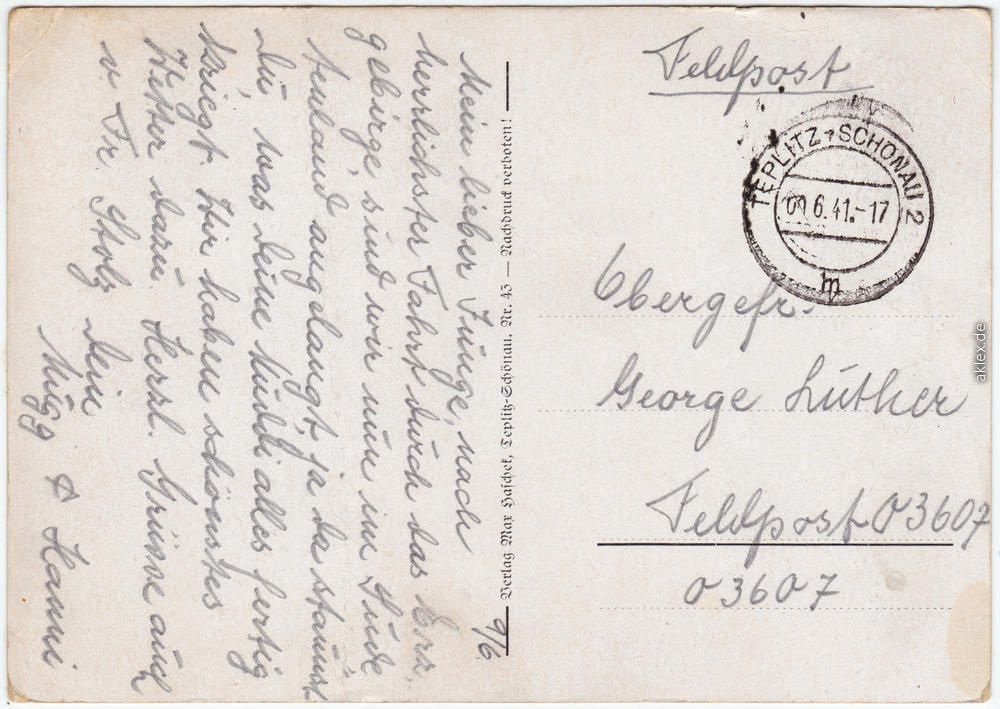 Feldpost
TEPLITZ-SCHÖNAU 2
09.6.41.-17
m
Obergefr.
George Luther
Feldpost 03607
03607
Verlag Max Haschek, Teplitz-Schönau. Nr. 43 — Nachdruck verboten!
9/6
Mein lieber Junge, nach
herrlichster Fahrt durch das Erz-
gebirge, sind wir nun im Sude
tenland angelangt, ja da staunst
Du was Deine Mutti alles fertig
kriegt. Wir haben schönstes
Wetter dazu. Herzl. Grüsse auch
v. Fr. Stolz Dein
& Hanni
aklex.de